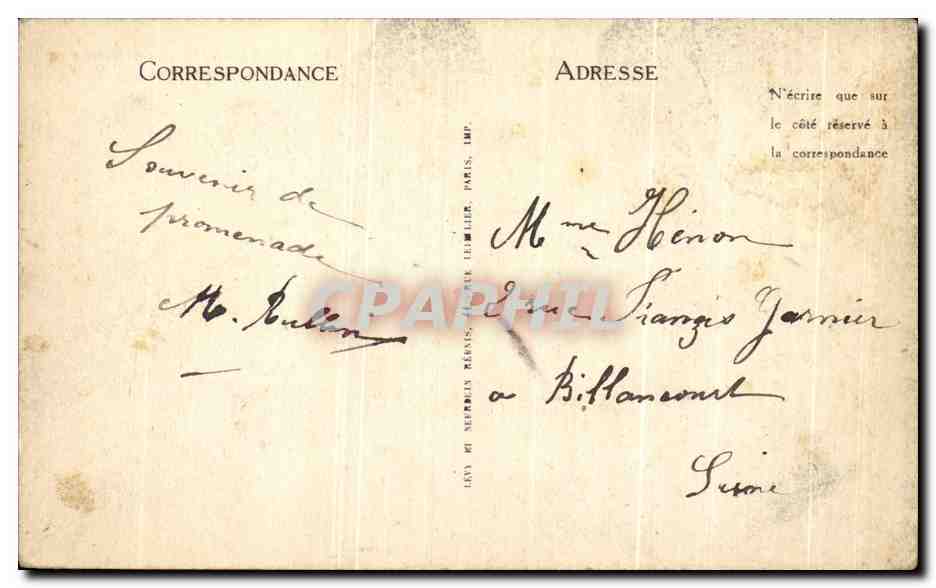 CORRESPONDANCE
Souvenir de
promenade
M. Rullin
LÉVY ET NEURDEIN RÉUNIS, RUE LETELLIER, PARIS, IMP.
ADRESSE
N'écrire que sur
le côté réservé à
la correspondance
Mme Hénon
2 rue Françis Garnier
a Billancourt
Seine
CPAPHIL